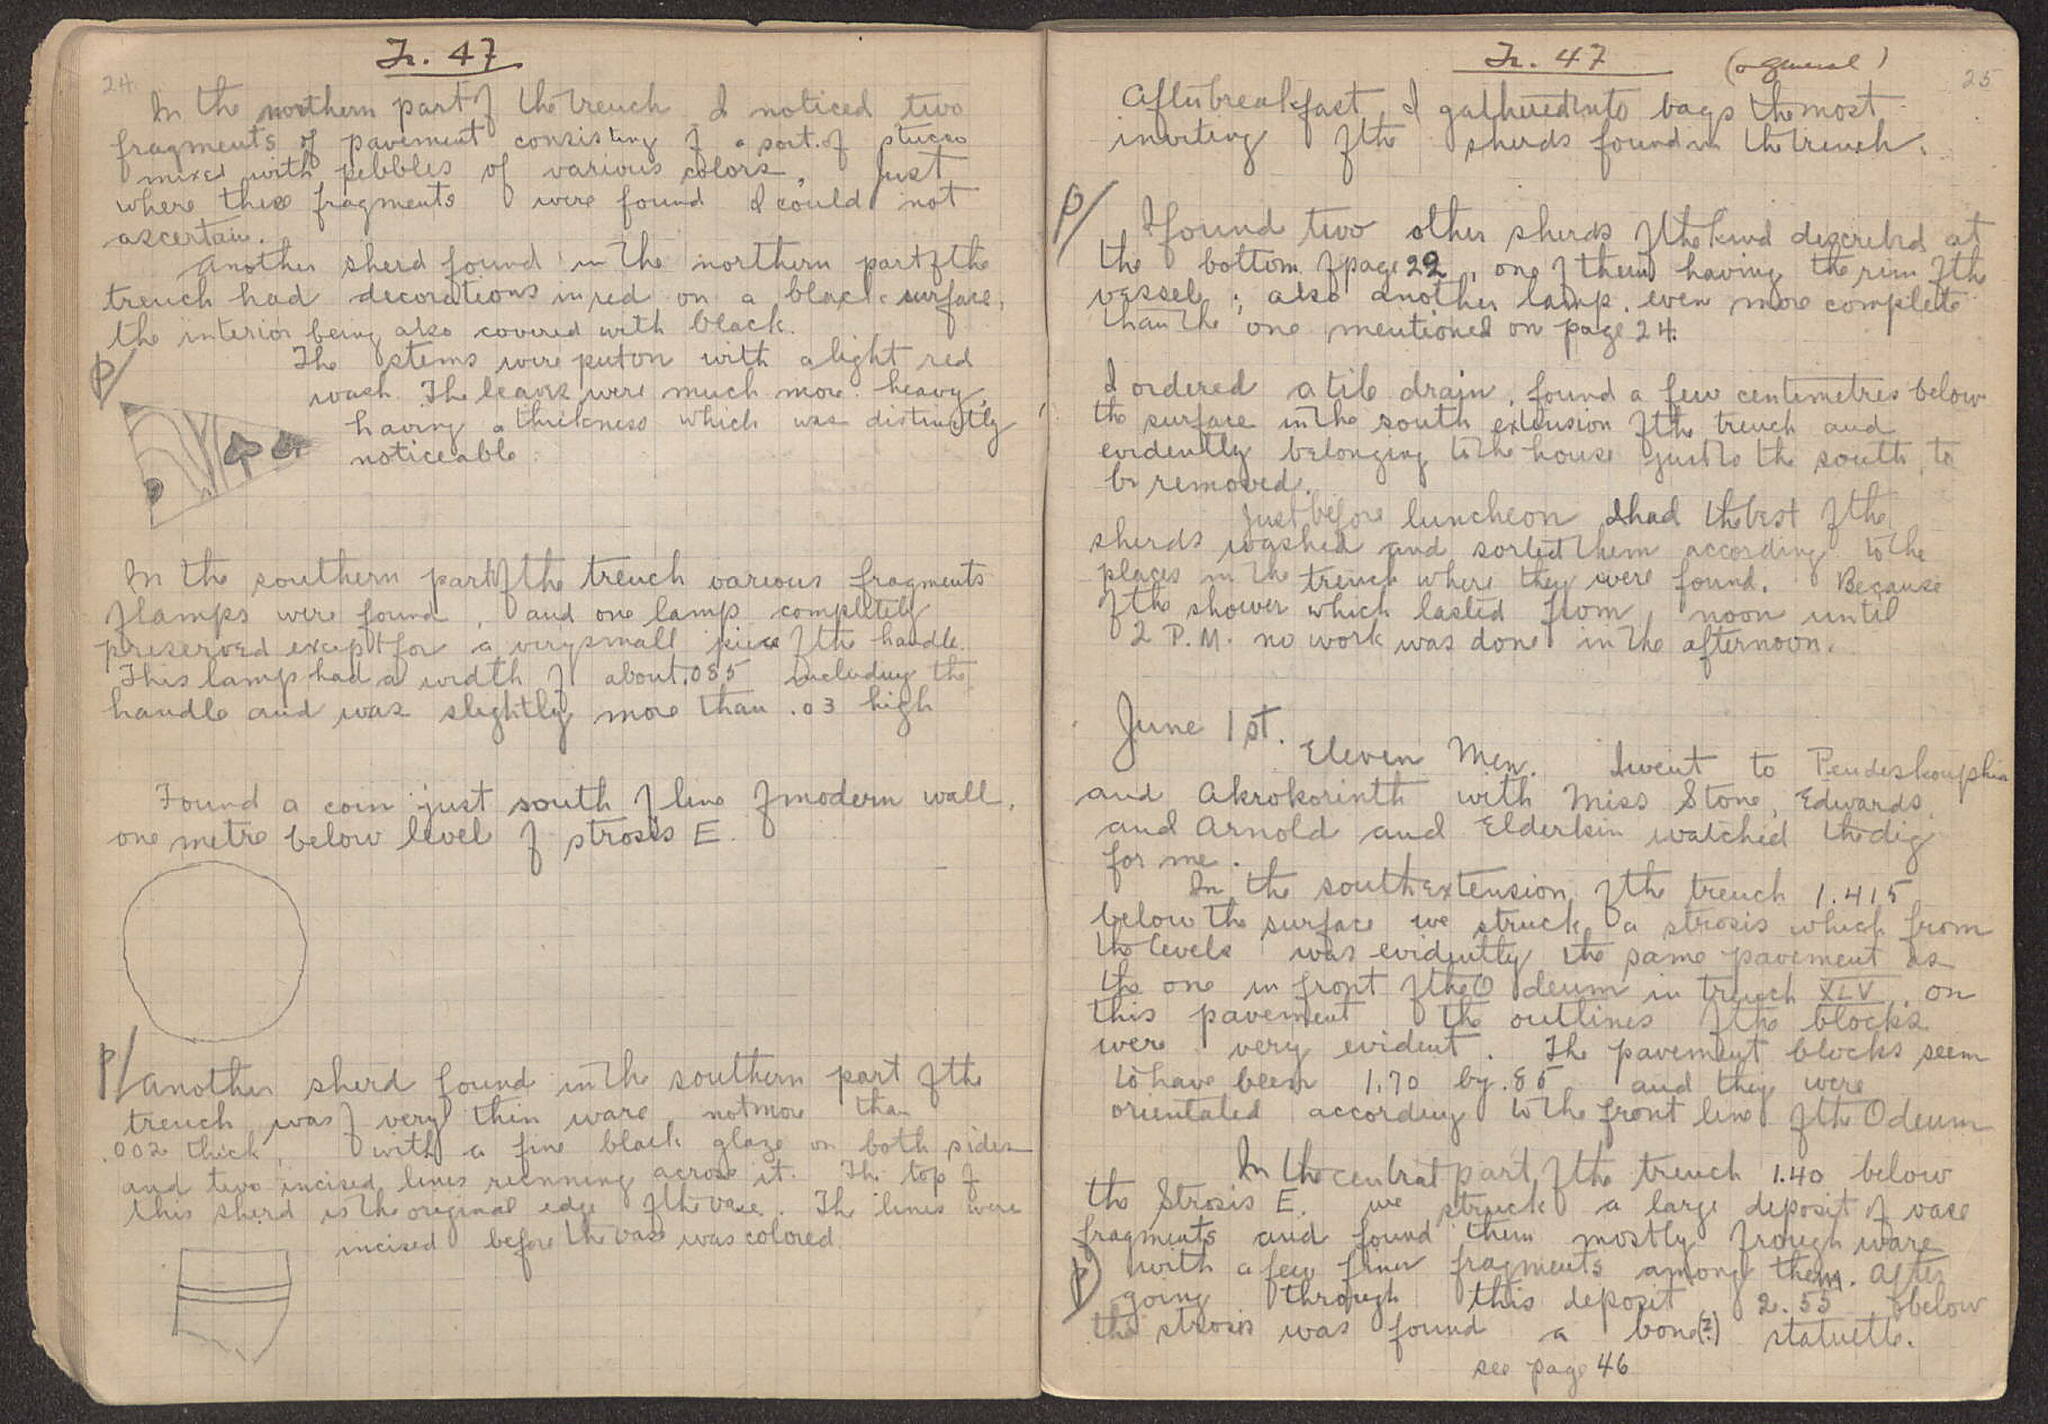 24
Tr. 47
In the northern part of the trench I noticed two
fragments of pavement consisting of a sort of stucco
mixed with pebbles of various colors. Just
where these fragments were found I could not
ascertain.
Another sherd found in the northern part of the
trench had decorations in red on a black surface,
the interior being also covered with black.
P/
The stems were put on with a light red
wash. The leaves were much more heavy,
having a thickness which was distinctly
noticeable.
In the southern part of the trench various fragments
of lamps were found, and one lamp completely
preserved except for a very small piece of the handle.
This lamp had a width of about .085 including the
handle and was slightly more than .03 high
Found a coin just south of line of modern wall,
one metre below level of strosis E.
P/ Another sherd found in the southern part of the
trench was of very thin ware not more than
.002 thick, with a fine black glaze on both sides
and two incised lines running across it. The top of
this sherd is the original edge of the vase. The lines were
incised before the vase was colored.
Tr. 47 (general)
25
After breakfast I gathered into bags the most
inviting of the sherds found in the trench.
P/
I found two other sherds of the kind described at
the bottom of page 22, one of them having the rim of the
vessel; also another lamp even more complete
than the one mentioned on page 24.
I ordered a tile drain, found a few centimetres below
the surface in the south extension of the trench and
evidently belonging to the house just to the south, to
be removed.
Just before luncheon I had the best of the
sherds washed and sorted them according to the
places in the trench where they were found. Because
of the shower which lasted from noon until
2 P.M. no work was done in the afternoon.
June 1st.
Eleven Men. I went to Pendeskouphia
and Akrokorinth with Miss Stone, Edwards,
and Arnold and Elderkin watched the dig
for me.
In the south extension of the trench 1.415
below the surface we struck a strosis which from
the levels was evidently the same pavement as
the one in front of the Odeum in trench XLV. On
this pavement the outlines of the blocks
were very evident. The pavement blocks seem
to have been 1.70 by .85 and they were
orientated according to the front line of the Odeum
In the central part of the trench 1.40 below
the Strosis E. we struck a large deposit of vase
fragments and found them mostly of rough ware
with a few finer fragments among them. After
P)
going through this deposit 2.55 below
the strosis was found a bone(?) statuette.
see page 46